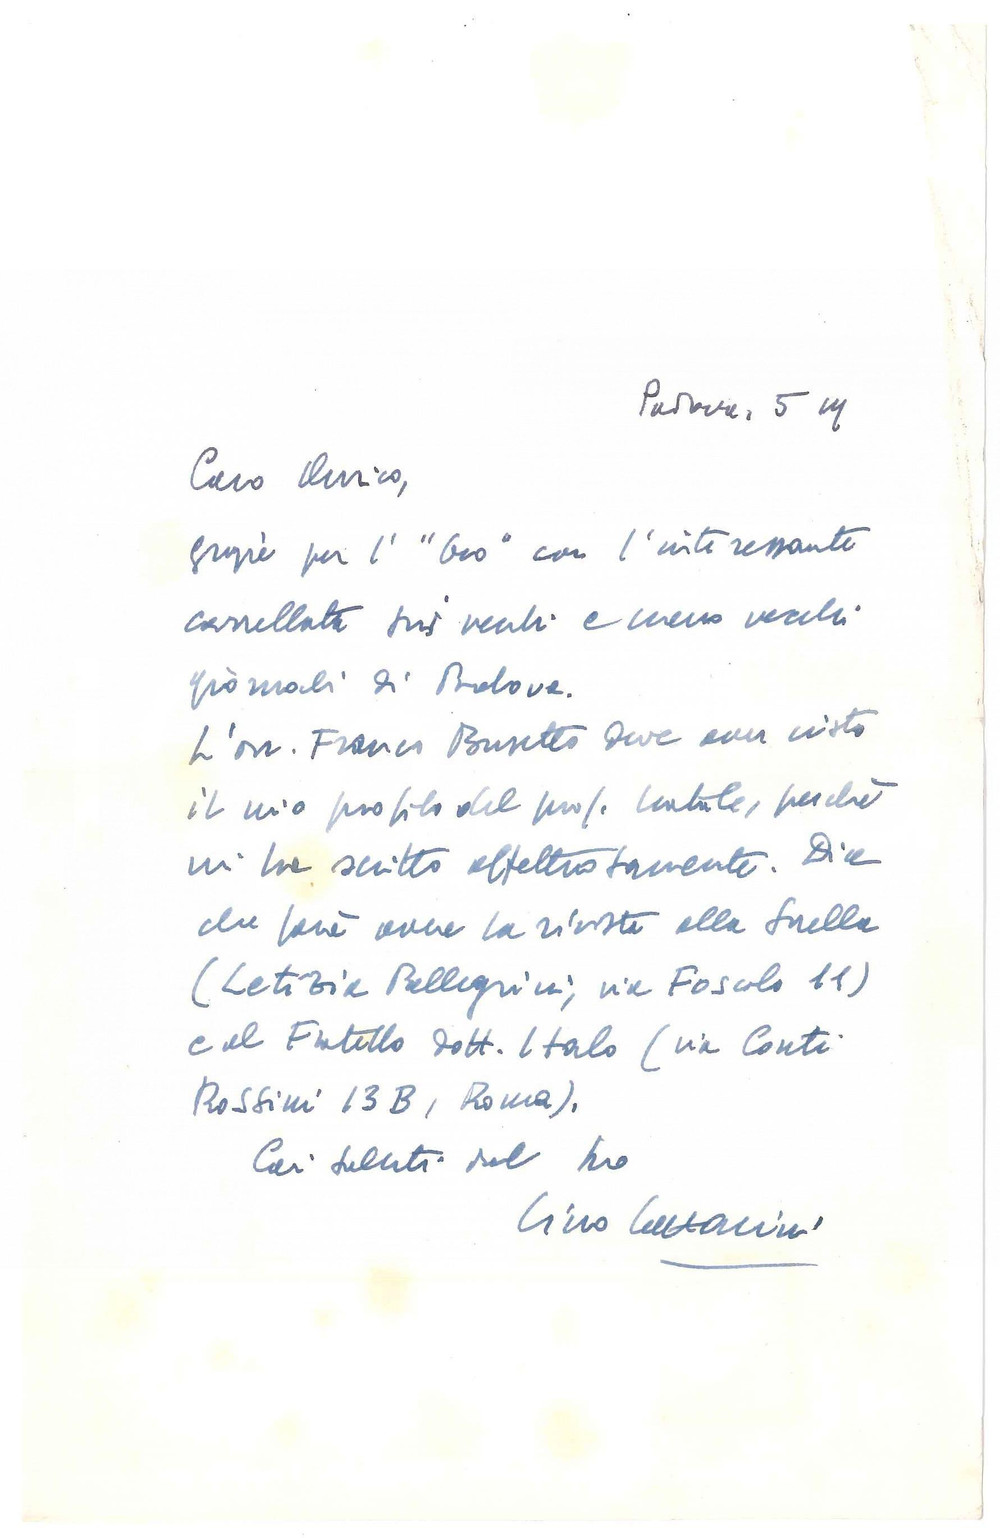 Padova, 5 III
Caro Enrico,
grazie per l' "Eco" con l'interessante
carrellata sui vecchi e meno vecchi
giornali di Padova.
L'on. Franco Busetto deve aver visto
il mio profilo del prof. Natale, perché
mi ha scritto affettuosamente. Dice
che farà avere la rivista alla sorella
(Letizia Pellegrini, via Foscolo 11)
e al fratello dott. Italo (via Conti
Rossini 13 B, Roma).
Cari saluti dal tuo
Gino